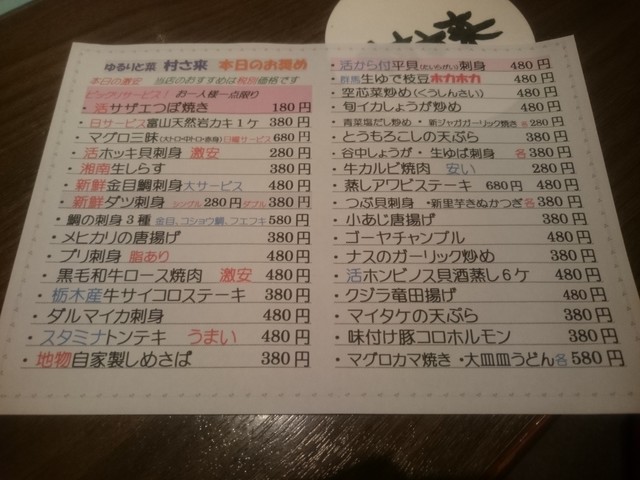 ゆるりと菜 村さ来 本日のお奨め
本日の激安 当店のおすすめは税別価格です
ビックリサービス! お一人様一点限り
・活サザエつぼ焼き 180円
・日サービス富山天然岩カキ1ケ 380円
・マグロ三昧(大トロ・中トロ・赤身)日曜サービス680円
・活ホッキ貝刺身 激安 280円
・湘南生しらす 380円
・新鮮金目鯛刺身大サービス 480円
・新鮮ダツ刺身 シングル280円ダブル380円
・鯛の刺身3種 金目、コショウ鯛、フエフキ580円
・メヒカリの唐揚げ 380円
・ブリ刺身 脂あり 480円
・黒毛和牛ロース焼肉 激安 480円
・栃木産牛サイコロステーキ 380円
・ダルマイカ刺身 480円
・スタミナトンテキ うまい 480円
・地物自家製しめさば 380円
・活から付平貝(たいらがい)刺身 480円
・群馬生ゆで枝豆ホカホカ 480円
・空芯菜炒め(くうしんさい) 480円
・旬イカしょうが炒め 480円
・青菜塩だし炒め・新ジャガガーリック焼き各280円
・とうもろこしの天ぷら 380円
・谷中しょうが・生ゆば刺身 各380円
・牛カルビ焼肉 安い 280円
・蒸しアワビステーキ 680円 480円
・つぶ貝刺身 ・新里芋きぬかつぎ各380円
・小あじ唐揚げ 380円
・ゴーヤチャンプル 480円
・ナスのガーリック炒め 380円
・活ホンビノス貝酒蒸し6ケ 480円
・クジラ竜田揚げ 480円
・マイタケの天ぷら 380円
・味付け豚コロホルモン 380円
・マグロカマ焼き・大皿皿うどん各580円